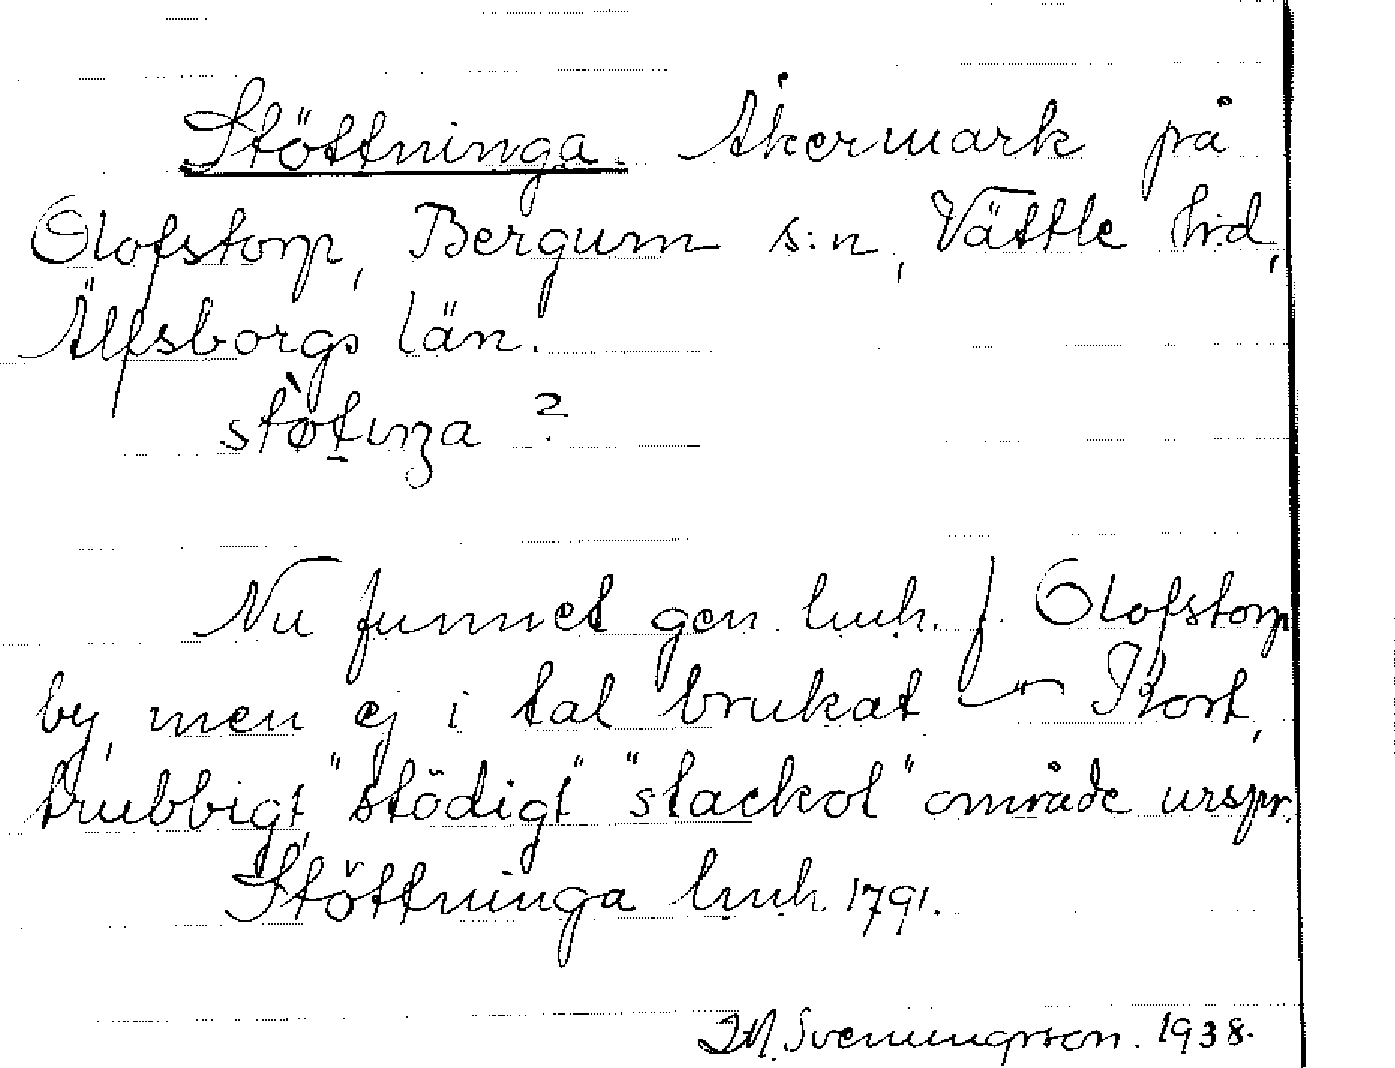 Stöttninga. Åkermark på
Olofstorp, Bergum s:n, Vättle hrd,
Älfsborgs län.
?
Nu funnet gen. lmh. f. Olofstorp
by, men ej i tal brukat Kort,
trubbigt, "stödigt" "stackot" område urspr.
Stöttninga lmh. 1791.
J.M. Svenningsson. 1938.